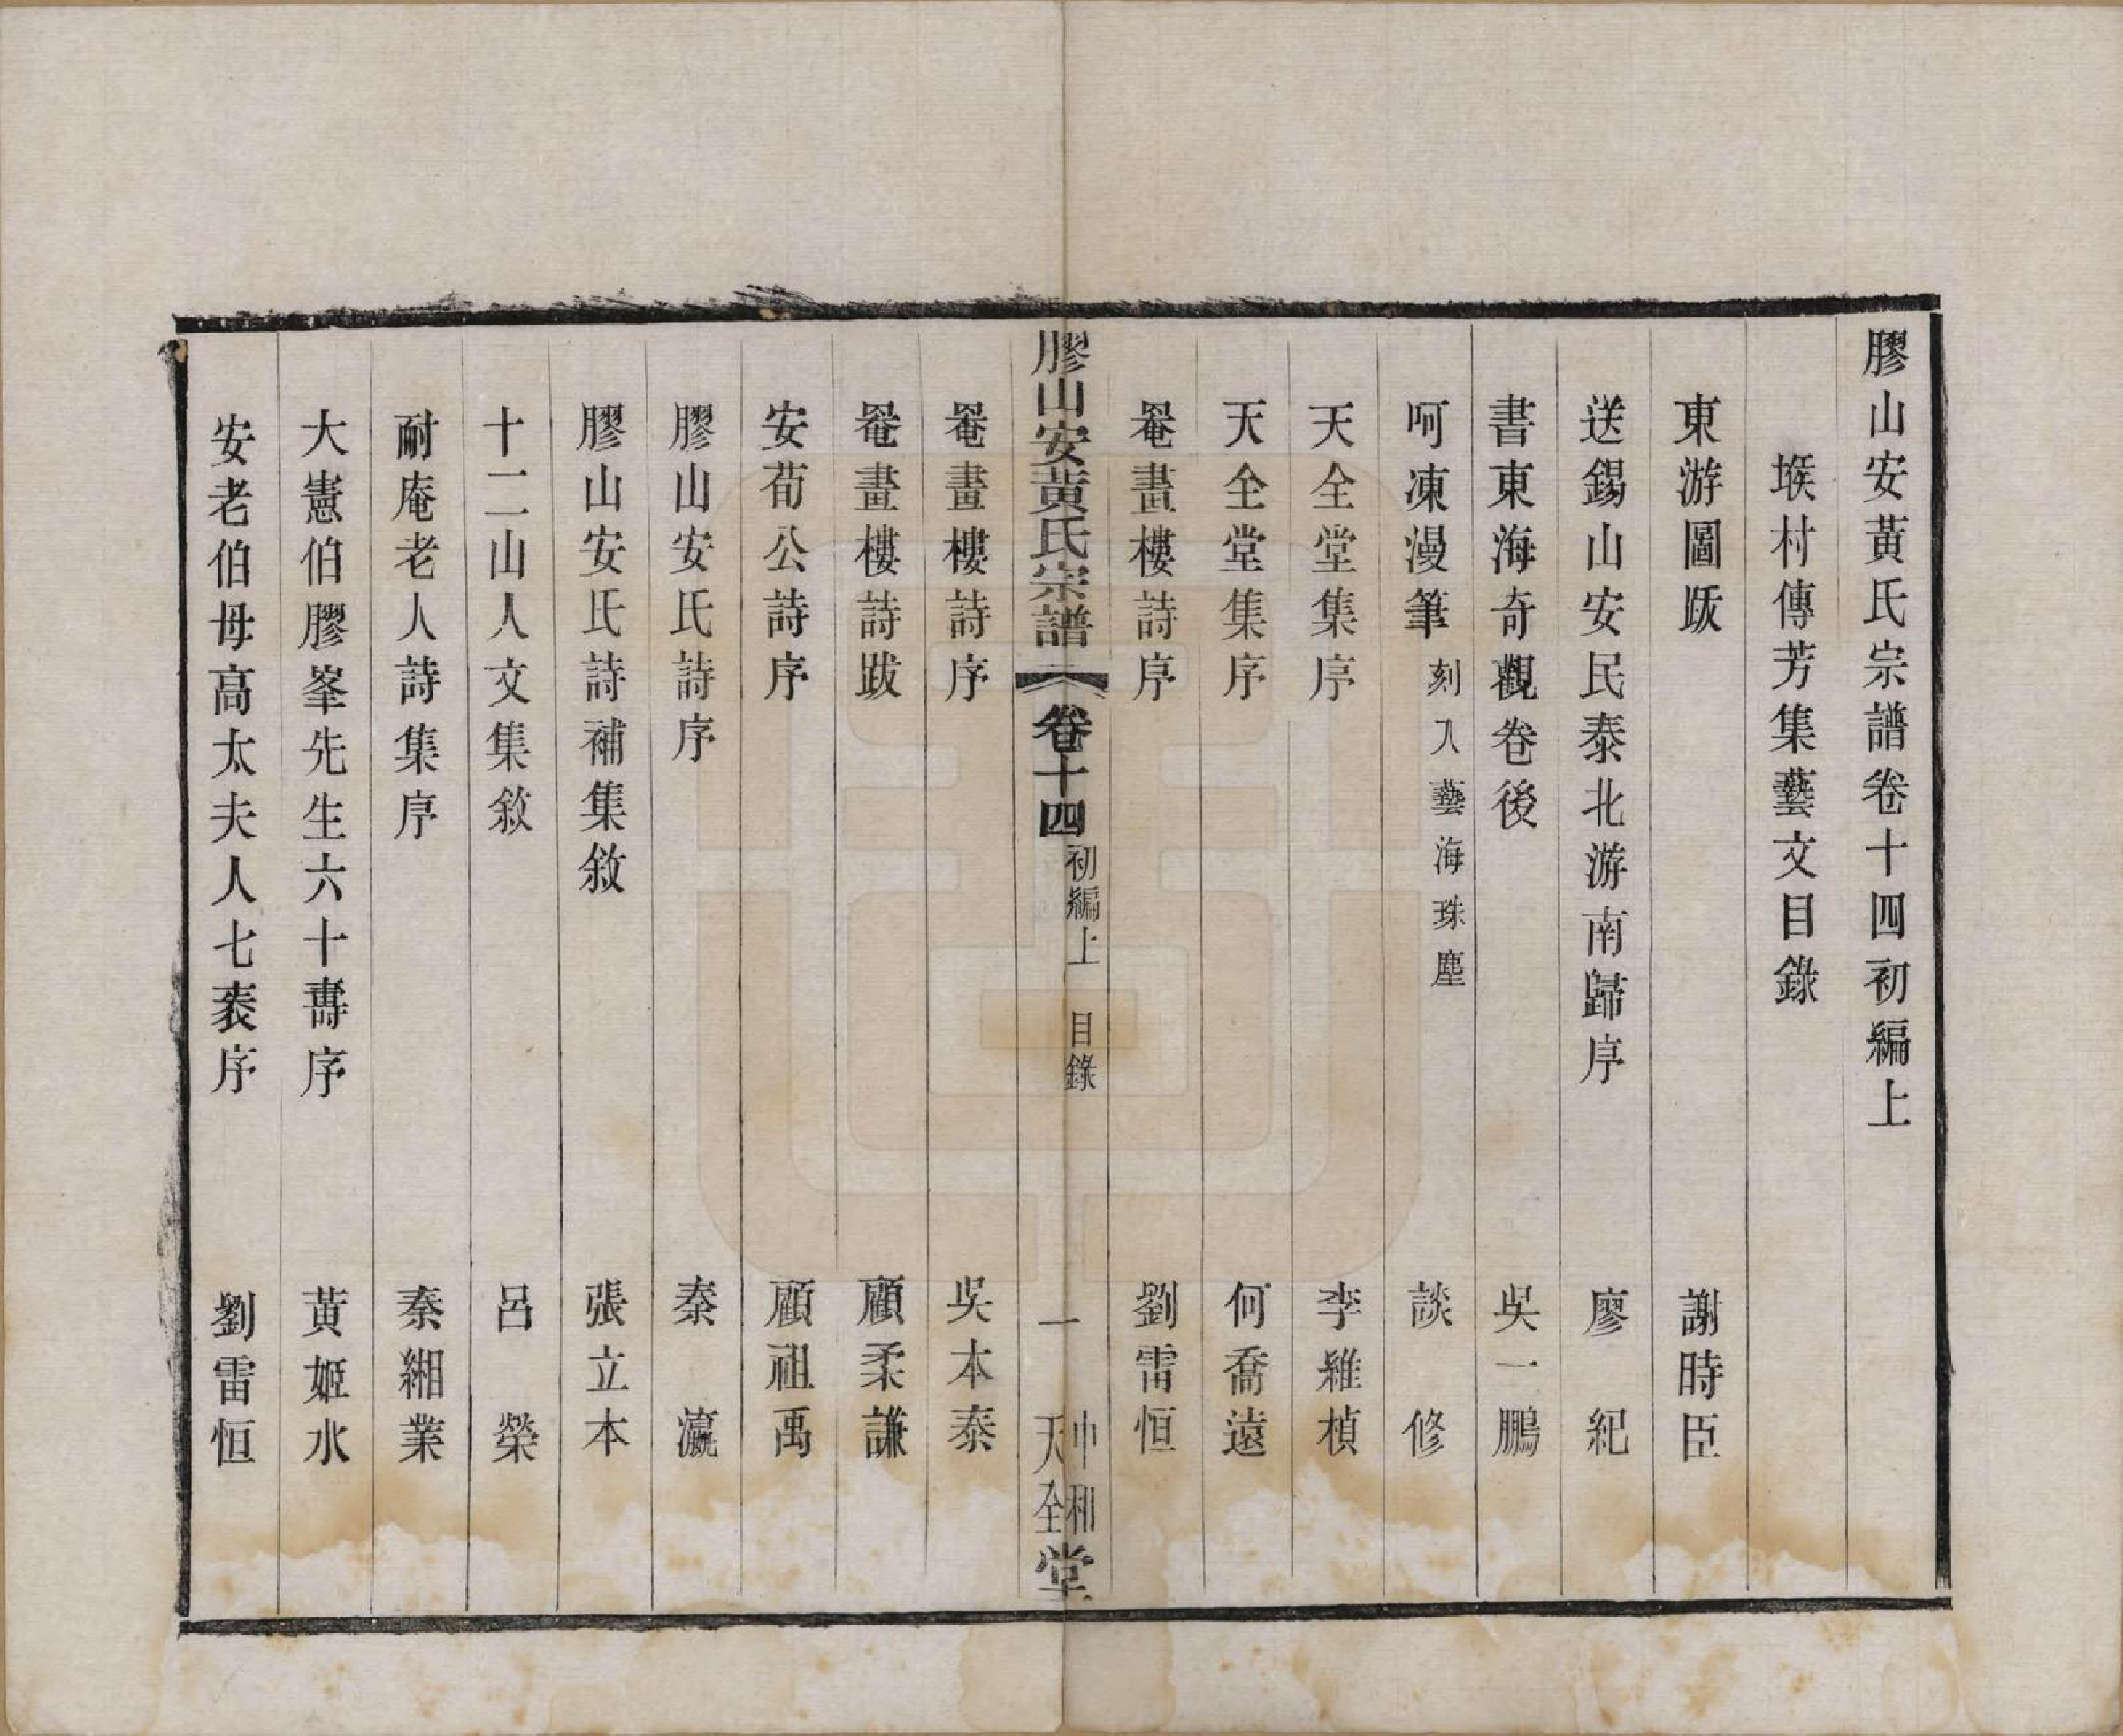 膠山安黃氏宗譜卷十四初編上
堠村傳芳集藝文目錄
東游圖䟦 謝時臣
送錫山安民泰北游南歸序 廖紀
書東海奇觀卷後 吳一鵬
呵凍漫筆 刻入藝海珠塵 談修
天全堂集序 李維楨
天全堂集序 何喬遠
罨畫樓詩序 劉雷恒
膠山安黃氏宗譜 卷十四 初編上 目錄 一 中和 天全 堂
罨畫樓詩序 吳本泰
罨畫樓詩跋 顧柔謙
安荀公詩序 顧祖禹
膠山安氏詩序 秦瀛
膠山安氏詩補集敘 張立本
十二山人文集敘 呂榮
耐庵老人詩集序 秦緗業
大憲伯膠峯先生六十壽序 黃姬水
安老伯母高太夫人七袠序 劉雷恒